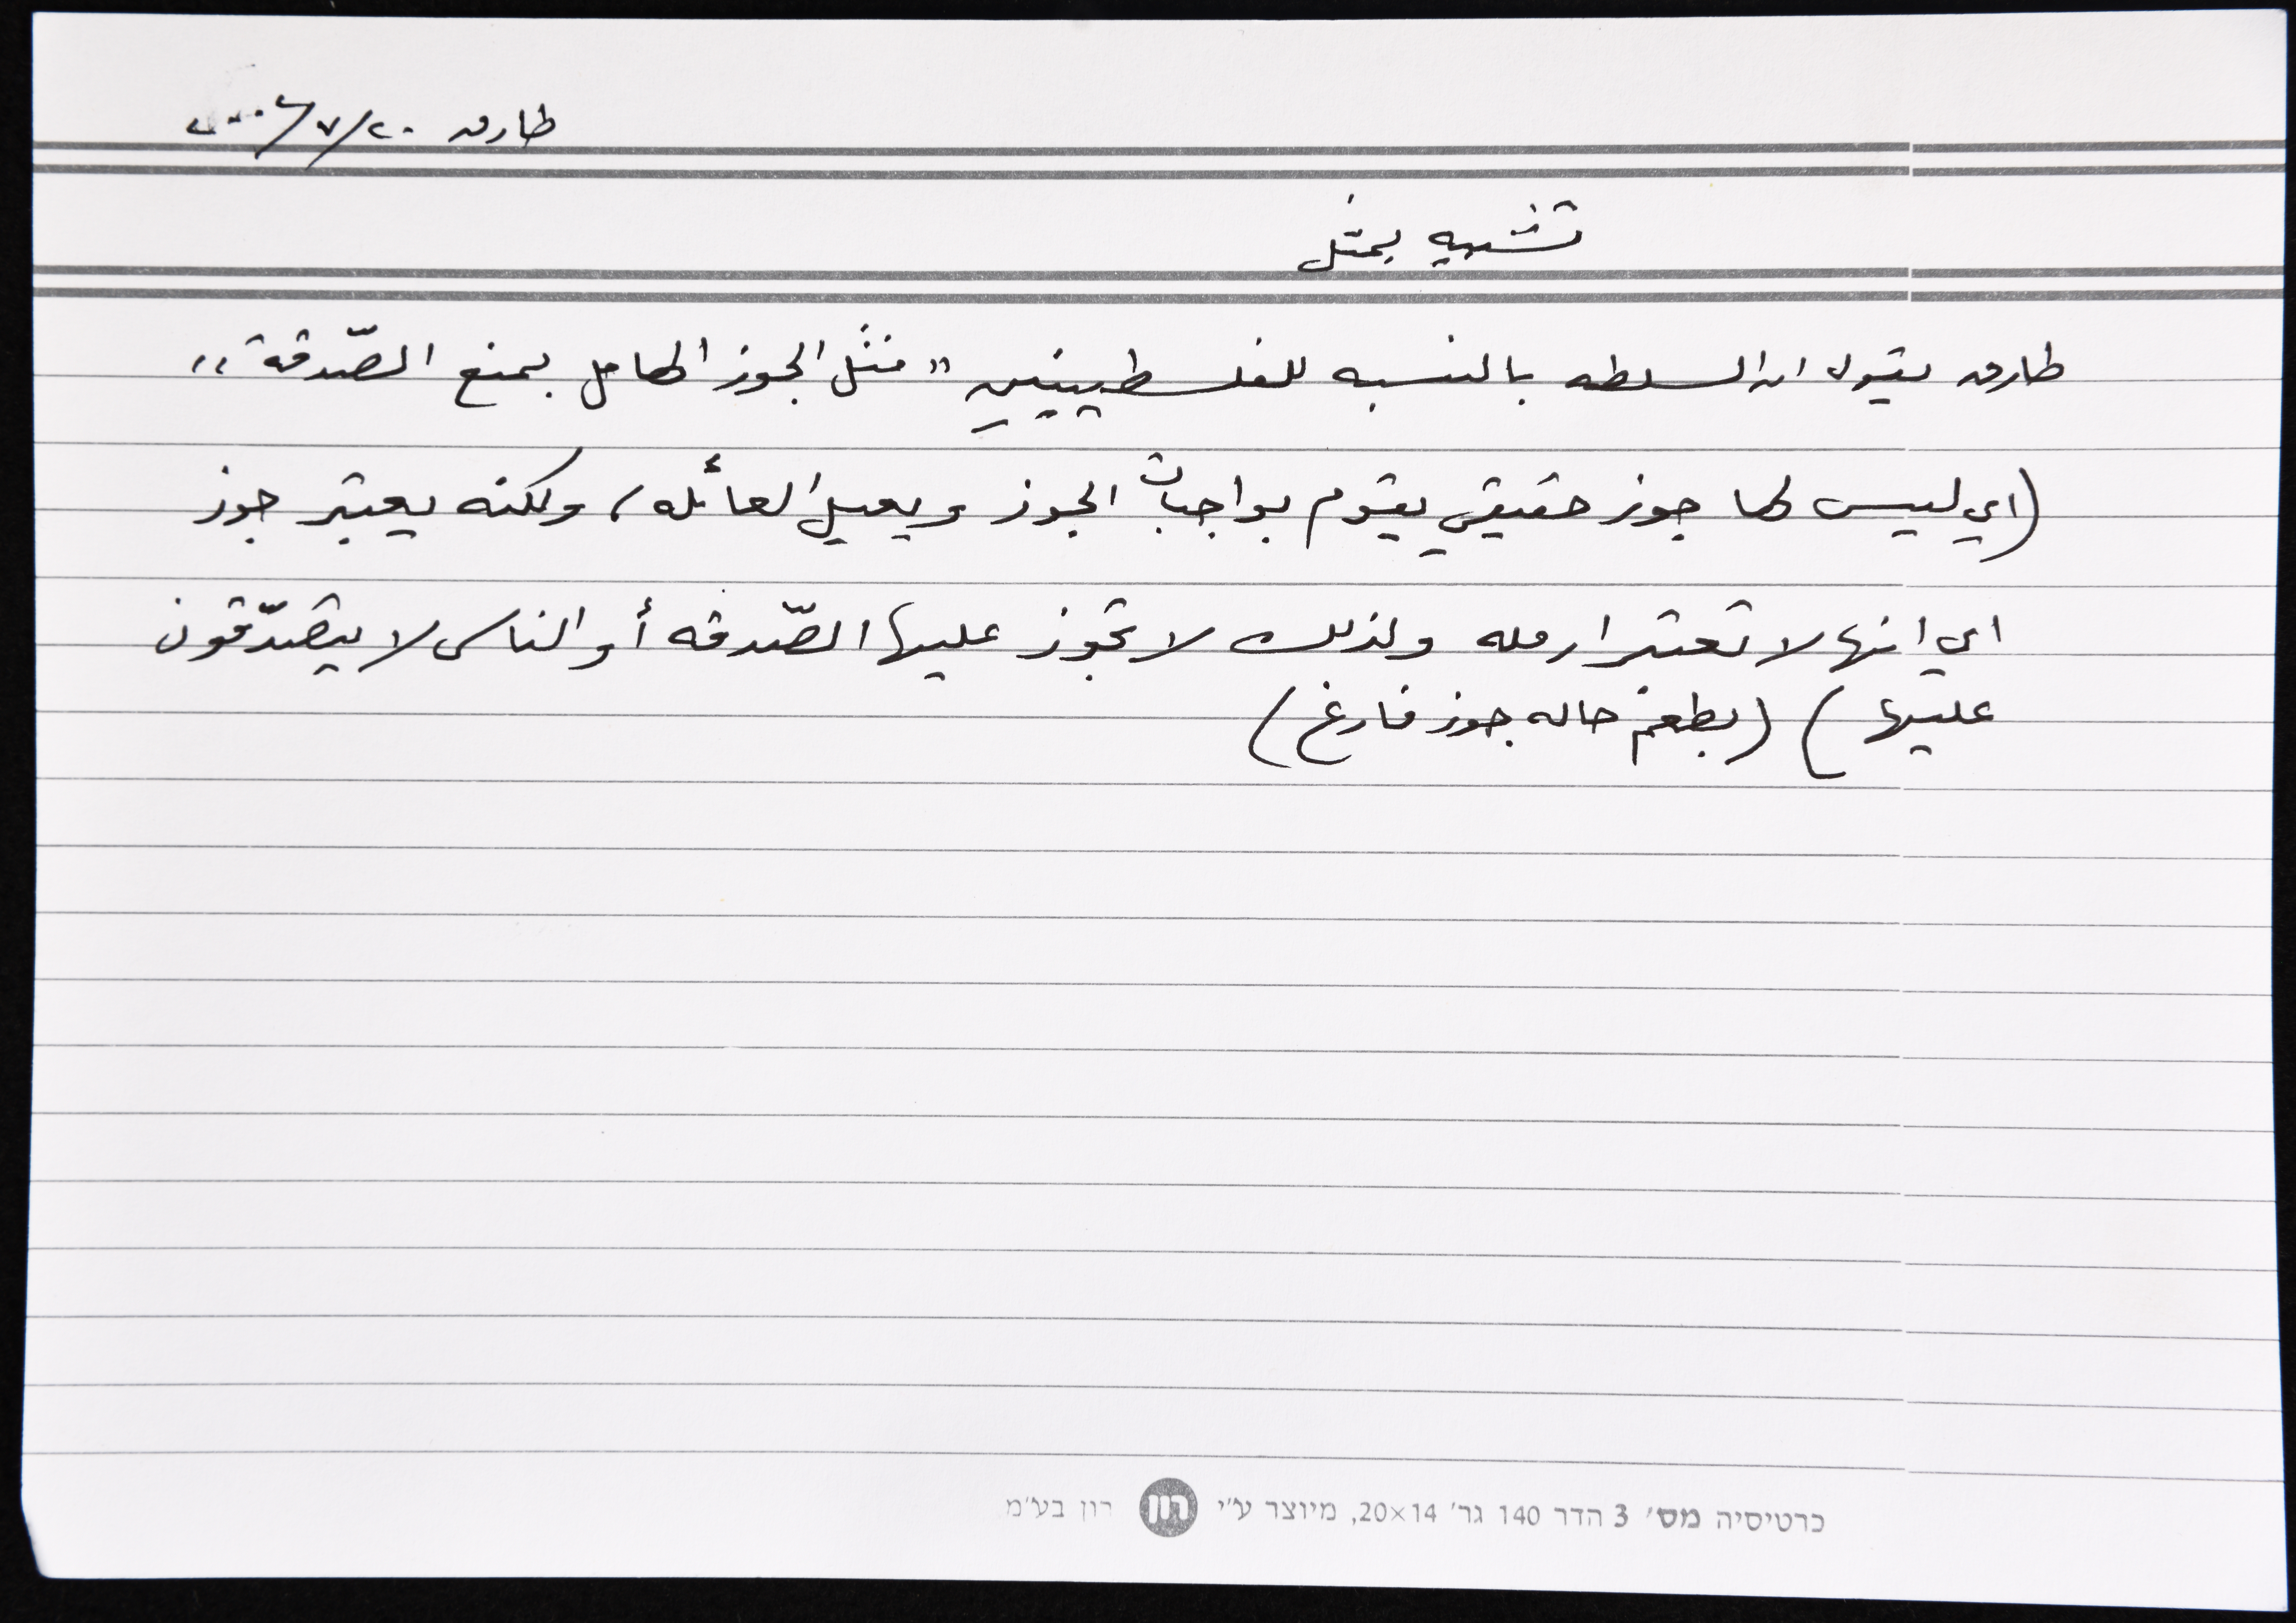 طارق ٢٠/٧/٢٠٠٦
تشبيه بمثل
طارق يقول ان السلطه بالنسبه للفلسطينيين "مثل الجوز الهامل بمنع الصّدقة"
(اي ليس لها جوز حقيقي يقوم بواجبات الجوز ويعيل العائله، ولكنه يعتبر جوز
اي انها لا تعتبر ارمله ولذلك لا تجوز عليها الصّدقه أو الناس لا يتصدّقون
عليها) (بطعم حاله جوز فارغ)
כרטיסיה מס' 3 הדר 140 גר' 20×14, מיוצר ע"י רון רון בע"מ